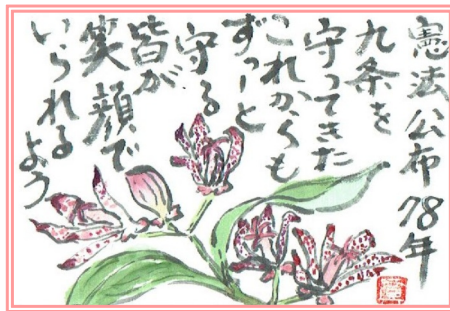 憲法公布78年
九条を
守ってきた
これからも
ずっーと
守る
皆が
笑顔で
いられる
よう